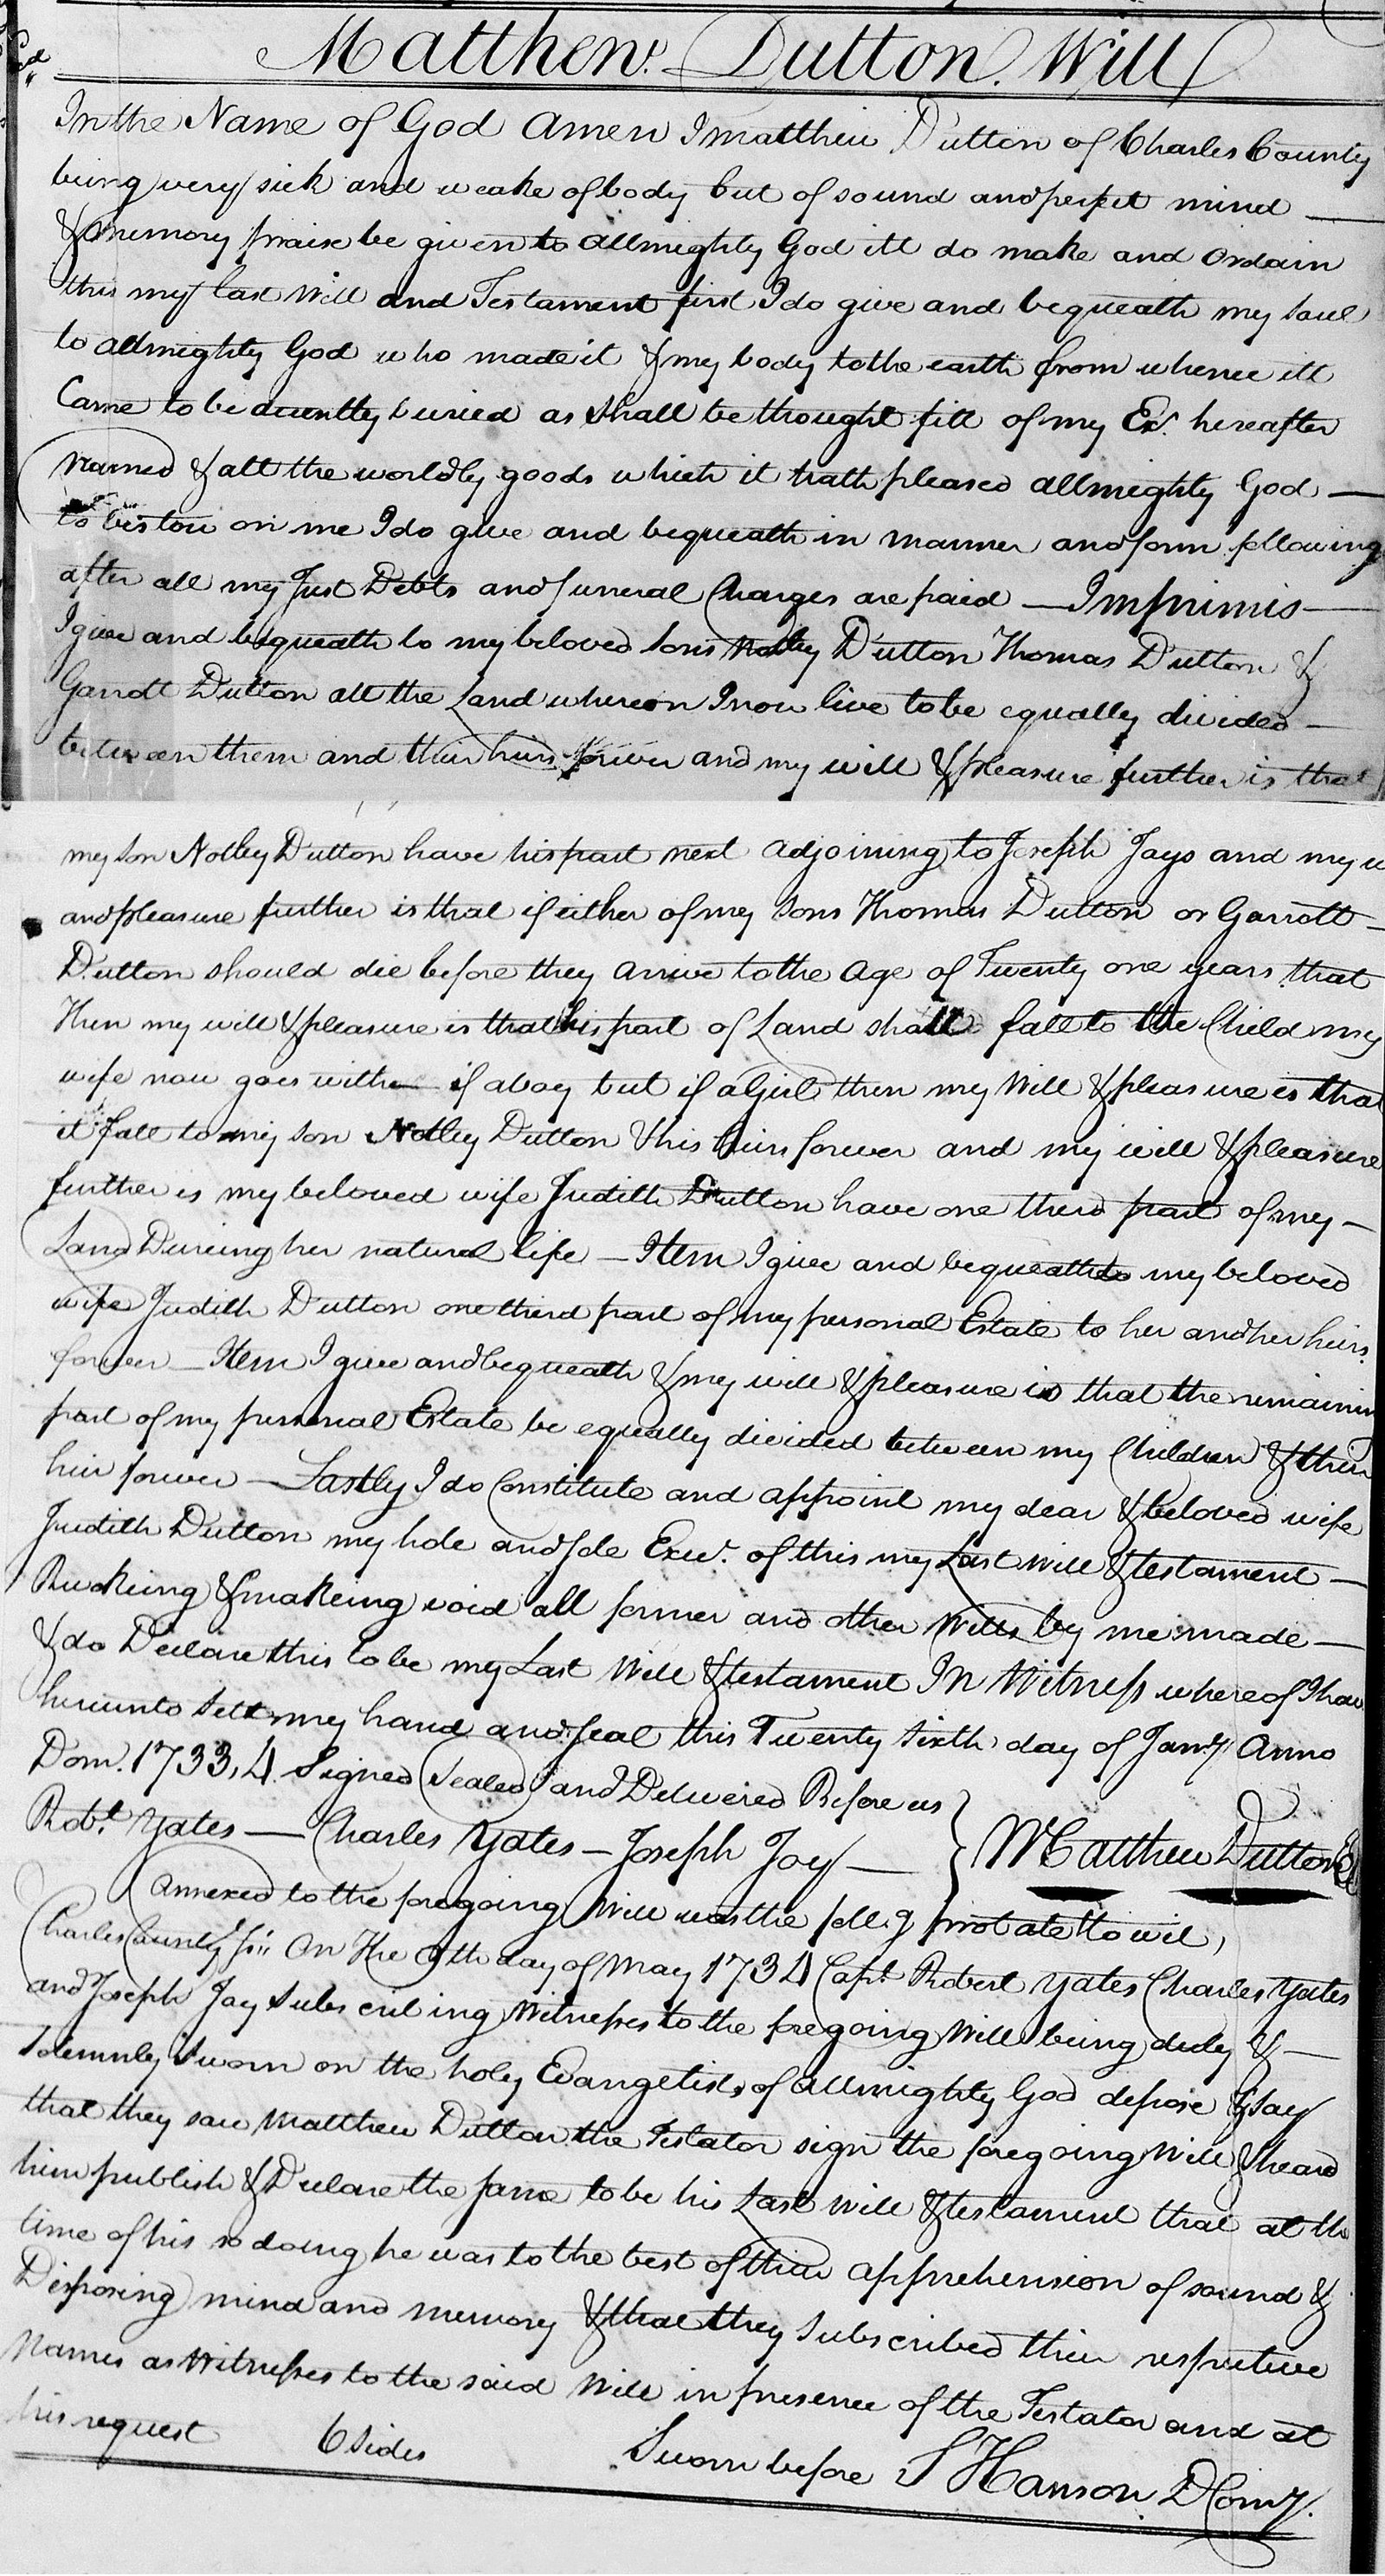 Matthew Dutton Will
In the Name of God Amen I matthew Dutton of Charles County
being very sick and weake of body but of sound and perfect mind
& memory praise be given to allmighty God itt do make and ordain
this my last Will and Testament first I do give and bequeath my soul
to allmighty God who made it & my body to the earth from whence itt
Came to be decently buried as shall be thought fitt of my Ex.r hereafter
named & all the worldly goods which it hath pleased allmighty God
to bestow on me I do give and bequeath in manner and form following
after all my Just Debts and funeral Charges are paid — Imprimis
I give and bequeath to my beloved sons Notley Dutton Thomas Dutton &
Garrott Dutton all the Land whereon I now live to be equally divided
between them and their heirs forever and my will & pleasure further is that
my son Notley Dutton have his part next adjoining to Joseph Jays and my w
and pleasure further is that if either of my sons Thomas Dutton or Garrott
Dutton should die before they arrive to the age of Twenty one years that
Then my will & pleasure is that his part of Land shall fall to the Child my
wife now goes with if a boy but if a Girl then my Will & pleasure is tha
it fall to my son Notley Dutton & his heirs forever and my will & pleasure
further is my beloved wife Judith Dutton have one third part of my
Land Dureing her natural life — Item I give and bequeath to my beloved
wife Judith Dutton one third part of my personal Estate to her and her heirs
forever — Item I give and bequeath & my will & pleasure is that the remainin
part of my personal Estate be equally divided between my Children & their
heir forever — Lastly I do Constitute and appoint my dear & beloved wife
Judith Dutton my hole and sole Exer. of this my Last will & testament
Ruokeing & makeing void all former and other Wills by me made
& do Declare this to be my Last Will & testament In Witness whereof I hav
hereunto sett my hand and seal this Twenty sixth day of Jan.y Anno
Dom. 1733,4 Signed Sealed and Delivered Before us
Rob.t Yates — Charles Yates — Joseph Joy — } Matthew Dutton
Annexed to the foregoing Will was the foll.g probate to wit,
Charles County ss On The 9th day of May 1734 Capt. Robert Yates Charles Yates
and Joseph Jay subscribing Witnesses to the foregoing Will being duly &
solemnly sworn on the holy Evangelists of allmighty God depose & say
that they saw Matthew Dutton the Testator sign the foregoing Will & heard
him publish & Declare the same to be his Last Will & testament that at the
time of his so doing he was to the best of their apprehension of sound &
Disposing mind and memory & that they subscribed their respective
Names as Witnesses to the said Will in presence of the Testator and at
his request 6 sides Sworn before S Hanson D Com.y.